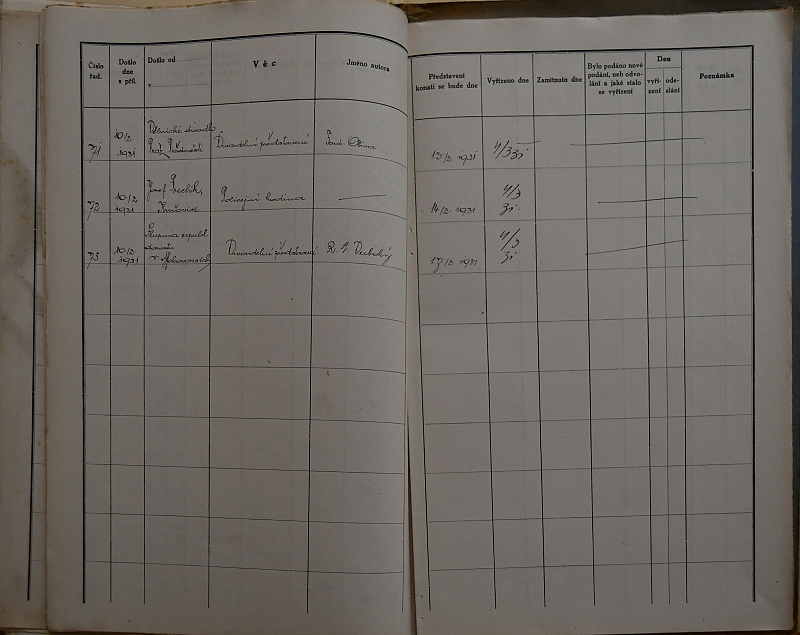 Číslo
řad.
Došlo
dne
s příl.
Došlo od
v
Věc
Jméno autora
Představení
konati se bude dne
Vyřízeno dne
Zamítnuto dne
Bylo podáno nové
podání, neb odvo-
lání a jaké stalo
se vyřízení
Den
vyří-
zení
ode-
slání
Poznámka
71
10/2
1931
Dělnické divadlo
Divadelní představení
15/2 1931
4/3 31
72
10/2
1931
Josef
14/2 1931
4/3
31
73
10/2
1931
Skupina republ.
v
Divadelní představení
R. J.
17/2 1931
4/3
31